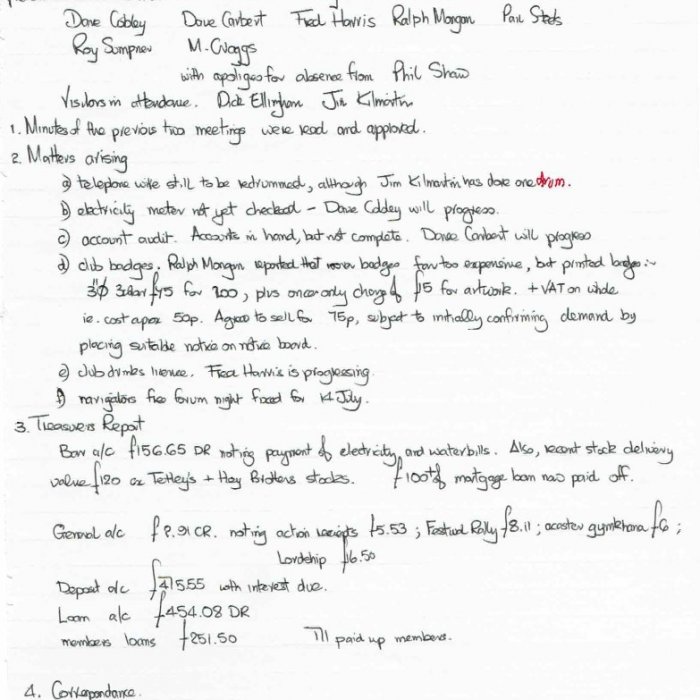 Dave Cobley Dave Corbert Fred Harris Ralph Morgan Paul
Roy Sumpner M. Craggs
with apoligies for absence from Phil Shaw
Visitors in attendance. Dick Ellingham Jim Kilmartin
1. Minutes of the previous two meetings were read and approved.
2. Matters arising
a) telephone wire still to be redrummed, although Jim Kilmartin has done one drum.
b) electricity meter not yet checked - Dave Cobley will progress.
c) account audit. Accounts in hand, but not complete. Dave Corbert will progress
d) club badges. Ralph Morgan reported that woven badges far too expensive, but printed badges :-
3"φ 3 colour £75 for 200, plus once only charge of £15 for artwork. + VAT on whole
ie. cost apox 50p. Agreed to sell for 75p, subject to initially confirming demand by
placing suitable notice on notice board.
e) club drinks licence. Fred Harris is progressing.
f) navigators free forum night fixed for 14 July.
3. Treasurers Report
Bar a/c £156.65 DR noting payment of electricity, and water bills. Also, recent stock delivery
value £120 ex Tetley's + Hey Brothers stocks. £100 of mortgage loan now paid off.
General a/c £8.91 CR. noting receipts £5.53 ; Festival Rally £8.11 ; acaster gymkhana £6 ;
Lordship £6.50
Deposit a/c £415.55 with interest due.
Loan a/c £454.08 DR
members loans £251.50 111 paid up members.
4. Correspondance.